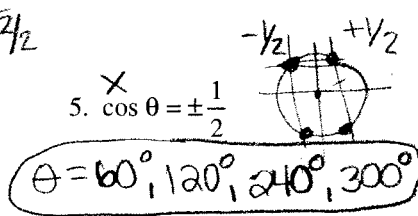 2/2
-1/2 +1/2
x
5. cos θ = ± 1/2
θ = 60°, 120°, 240°, 300°